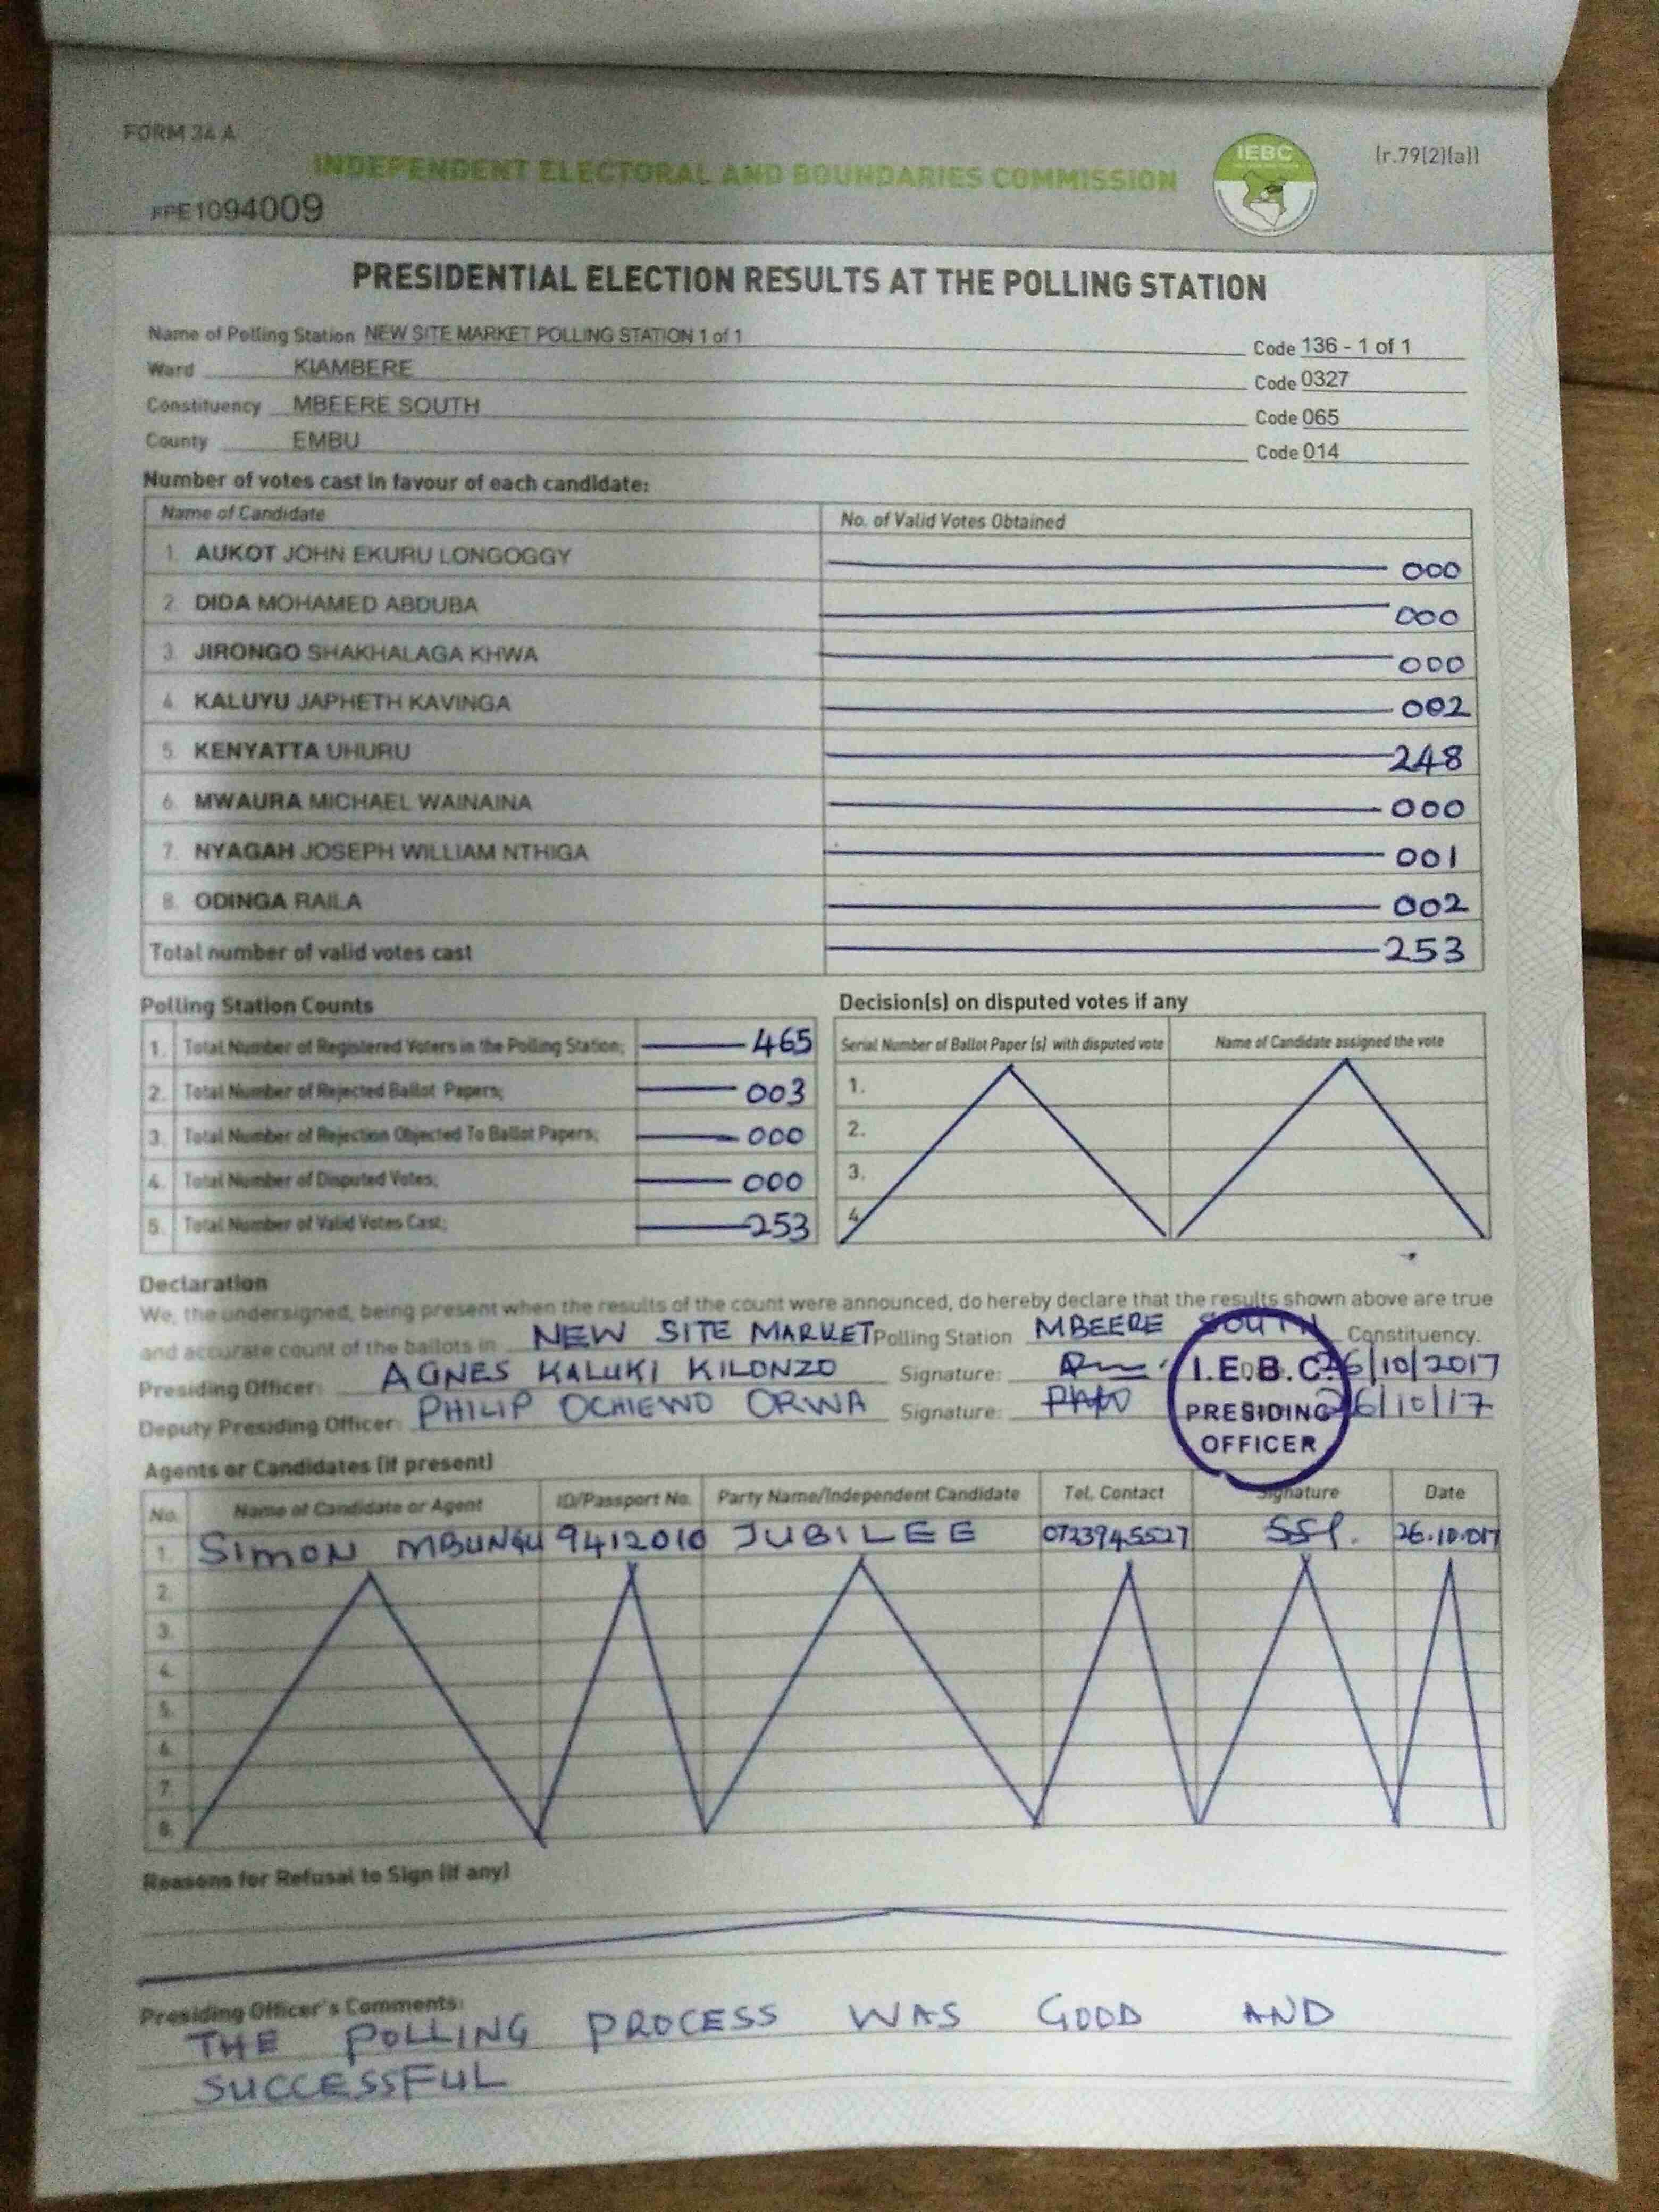 FORM 34 A
INDEPENDENT ELECTORAL AND BOUNDARIES COMMISSION
IEBC
(r.79(2)(a))
FPE1094009
PRESIDENTIAL ELECTION RESULTS AT THE POLLING STATION
Name of Polling Station NEW SITE MARKET POLLING STATION 1 of 1 Code 136 - 1 of 1
Ward KIAMBERE Code 0327
Constituency MBEERE SOUTH Code 065
County EMBU Code 014
Number of votes cast in favour of each candidate:
Name of Candidate No. of Valid Votes Obtained
1. AUKOT JOHN EKURU LONGOGGY 000
2. DIDA MOHAMED ABDUBA 000
3. JIRONGO SHAKHALAGA KHWA 000
4. KALUYU JAPHETH KAVINGA 002
5. KENYATTA UHURU 248
6. MWAURA MICHAEL WAINAINA 000
7. NYAGAH JOSEPH WILLIAM NTHIGA 001
8. ODINGA RAILA 002
Total number of valid votes cast 253
Polling Station Counts
1. Total Number of Registered Voters in the Polling Station; 465
2. Total Number of Rejected Ballot Papers; 003
3. Total Number of Rejection Objected To Ballot Papers; 000
4. Total Number of Disputed Votes; 000
5. Total Number of Valid Votes Cast; 253
Decision(s) on disputed votes if any
Serial Number of Ballot Paper (s) with disputed vote Name of Candidate assigned the vote
1.
2.
3.
4.
Declaration
We, the undersigned, being present when the results of the count were announced, do hereby declare that the results shown above are true
and accurate count of the ballots in NEW SITE MARKET Polling Station MBEERE SOUTH Constituency.
Presiding Officer: AGNES KALUKI KILONZO Signature: 26/10/2017
Deputy Presiding Officer: PHILIP OCHIEWO ORWA Signature: 26/10/17
I.E.B.C.
PRESIDING
OFFICER
Agents or Candidates (if present)
No. Name of Candidate or Agent ID/Passport No. Party Name/Independent Candidate Tel. Contact Signature Date
1. SIMON MBUNGU 9412010 JUBILEE 0723945527 26.10.017
2.
3.
4.
5.
6.
7.
8.
Reasons for Refusal to Sign (if any)
Presiding Officer's Comments:
THE POLLING PROCESS WAS GOOD AND
SUCCESSFUL